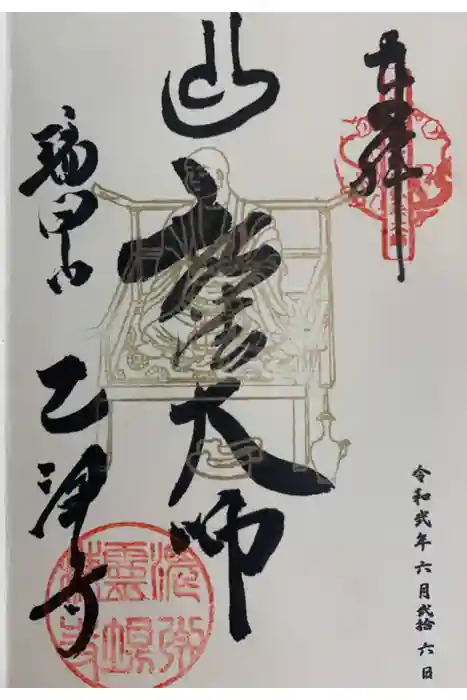 奉拝
令和弐年六月弐拾六日
弘法大師
瑞甲山
乙津寺